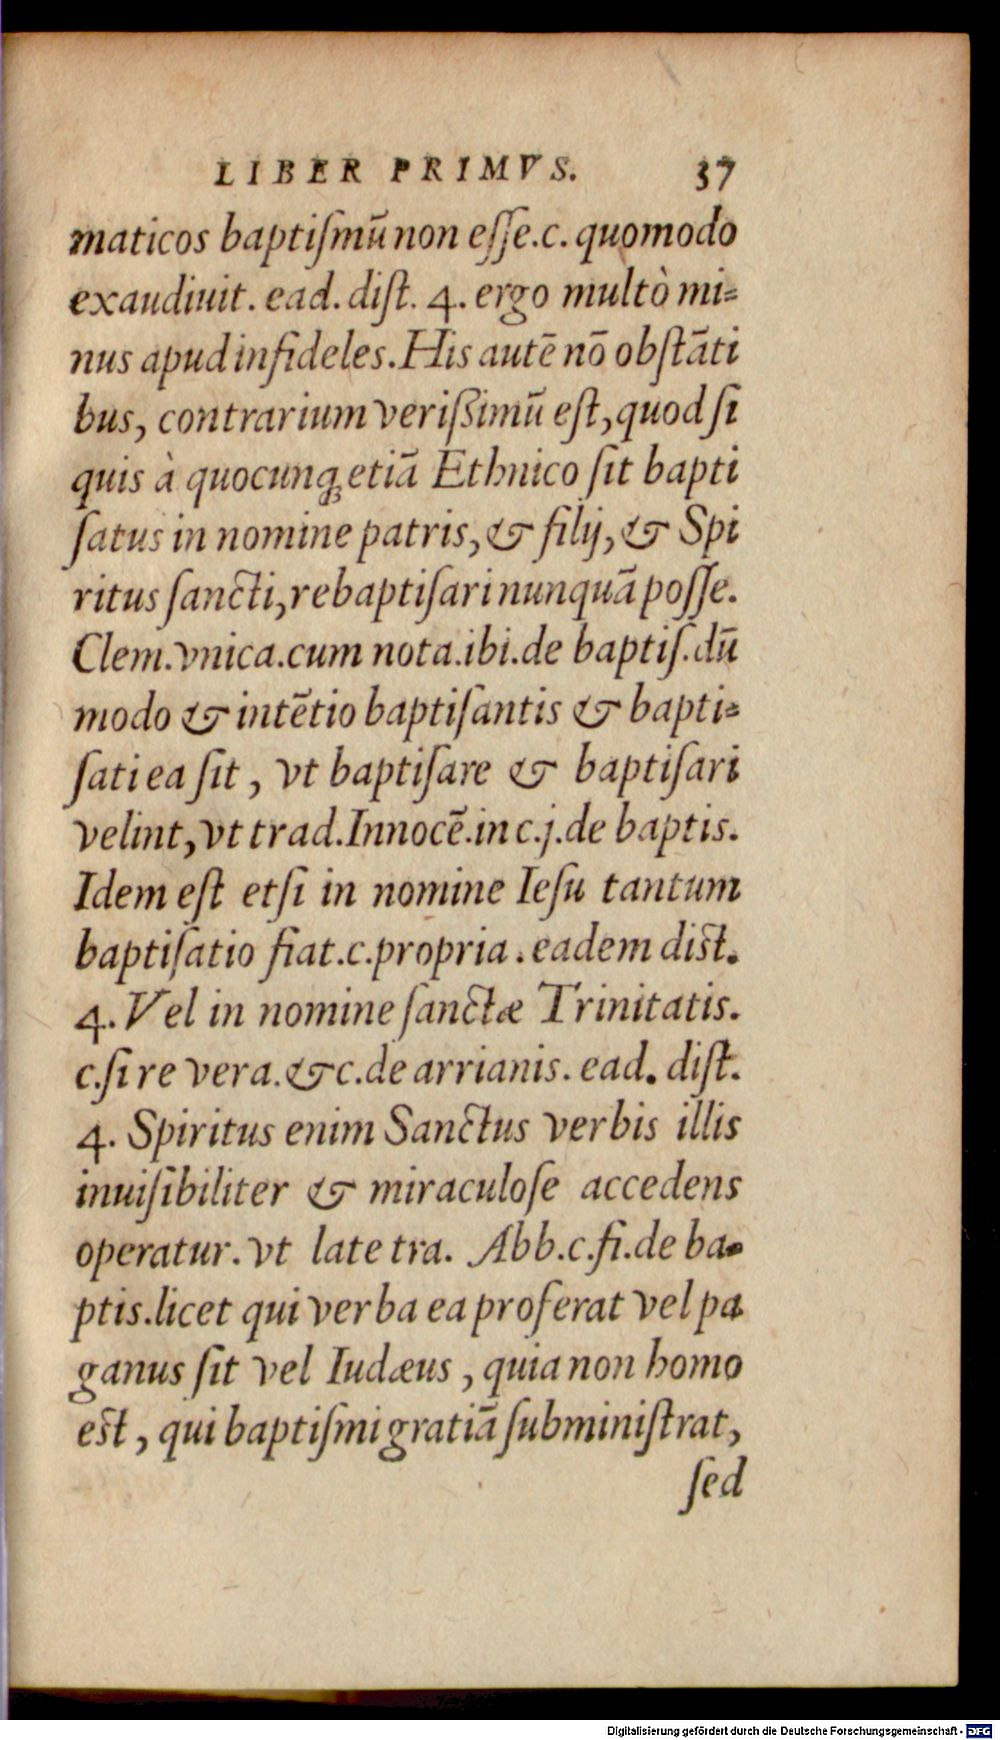 LIBER PRIMVS. 37
maticos baptiſmū non eſſe.c. quomodo
exaudiuit. ead. diſt. 4. ergo multò mi=
nus apud infideles. His autē nō obſtāti
bus, contrarium verißimū eſt, quod ſi
quis à quocunq; etiā Ethnico ſit bapti
ſatus in nomine patris, & filij, & Spi
ritus ſancti, rebaptiſari nunquā poſſe.
Clem. vnica. cum nota. ibi. de baptiſ. dū
modo & intētio baptiſantis & bapti=
ſati ea ſit, vt baptiſare & baptiſari
velint, vt trad. Innocē. in c. j. de baptis.
Idem eſt etſi in nomine Ieſu tantum
baptiſatio fiat. c. propria. eadem diſt.
4. Vel in nomine ſanctæ Trinitatis.
c. ſi re vera. & c. de arrianis. ead. diſt.
4. Spiritus enim Sanctus verbis illis
inuiſibiliter & miraculoſe accedens
operatur. vt late tra. Abb. c. fi. de ba=
ptis. licet qui verba ea proferat vel pa
ganus ſit vel Iudæus, quia non homo
eſt, qui baptiſmi gratiā ſubminiſtrat,
ſed
Digitalisierung gefördert durch die Deutsche Forschungsgemeinschaft - DFG